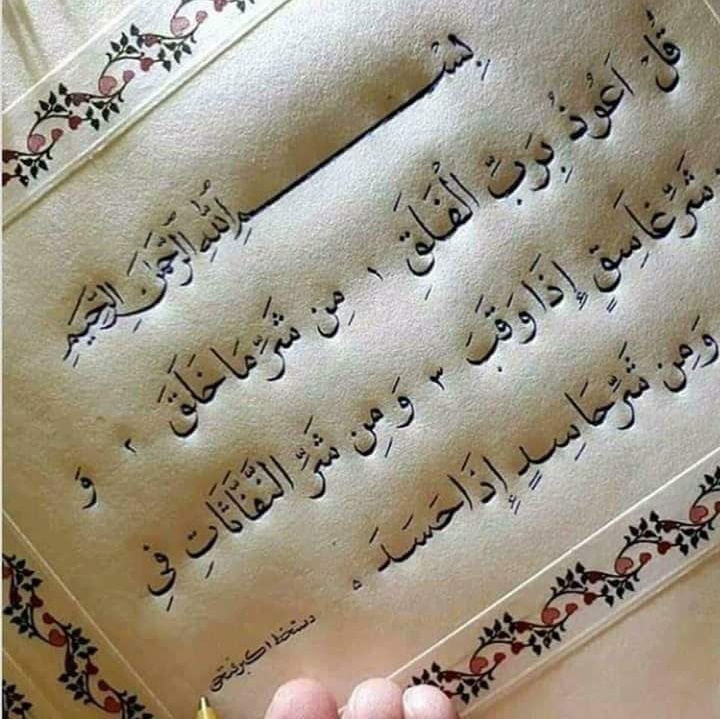 بِسْمِ اللّٰهِ الرَّحْمٰنِ الرَّحِيمِ
قُلْ اَعُوذُ بِرَبِّ الْفَلَقِ ۱ مِن شَرِّ مَا خَلَقَ ۲ وَ
شَرِّ غَاسِقٍ إِذَا وَقَبَ ۳ وَ مِن شَرِّ النَّفَّاثَاتِ فِي
وَمِن شَرِّ حَاسِدٍ إِذَا حَسَدَ ۵
دستخط اکبر فتحی